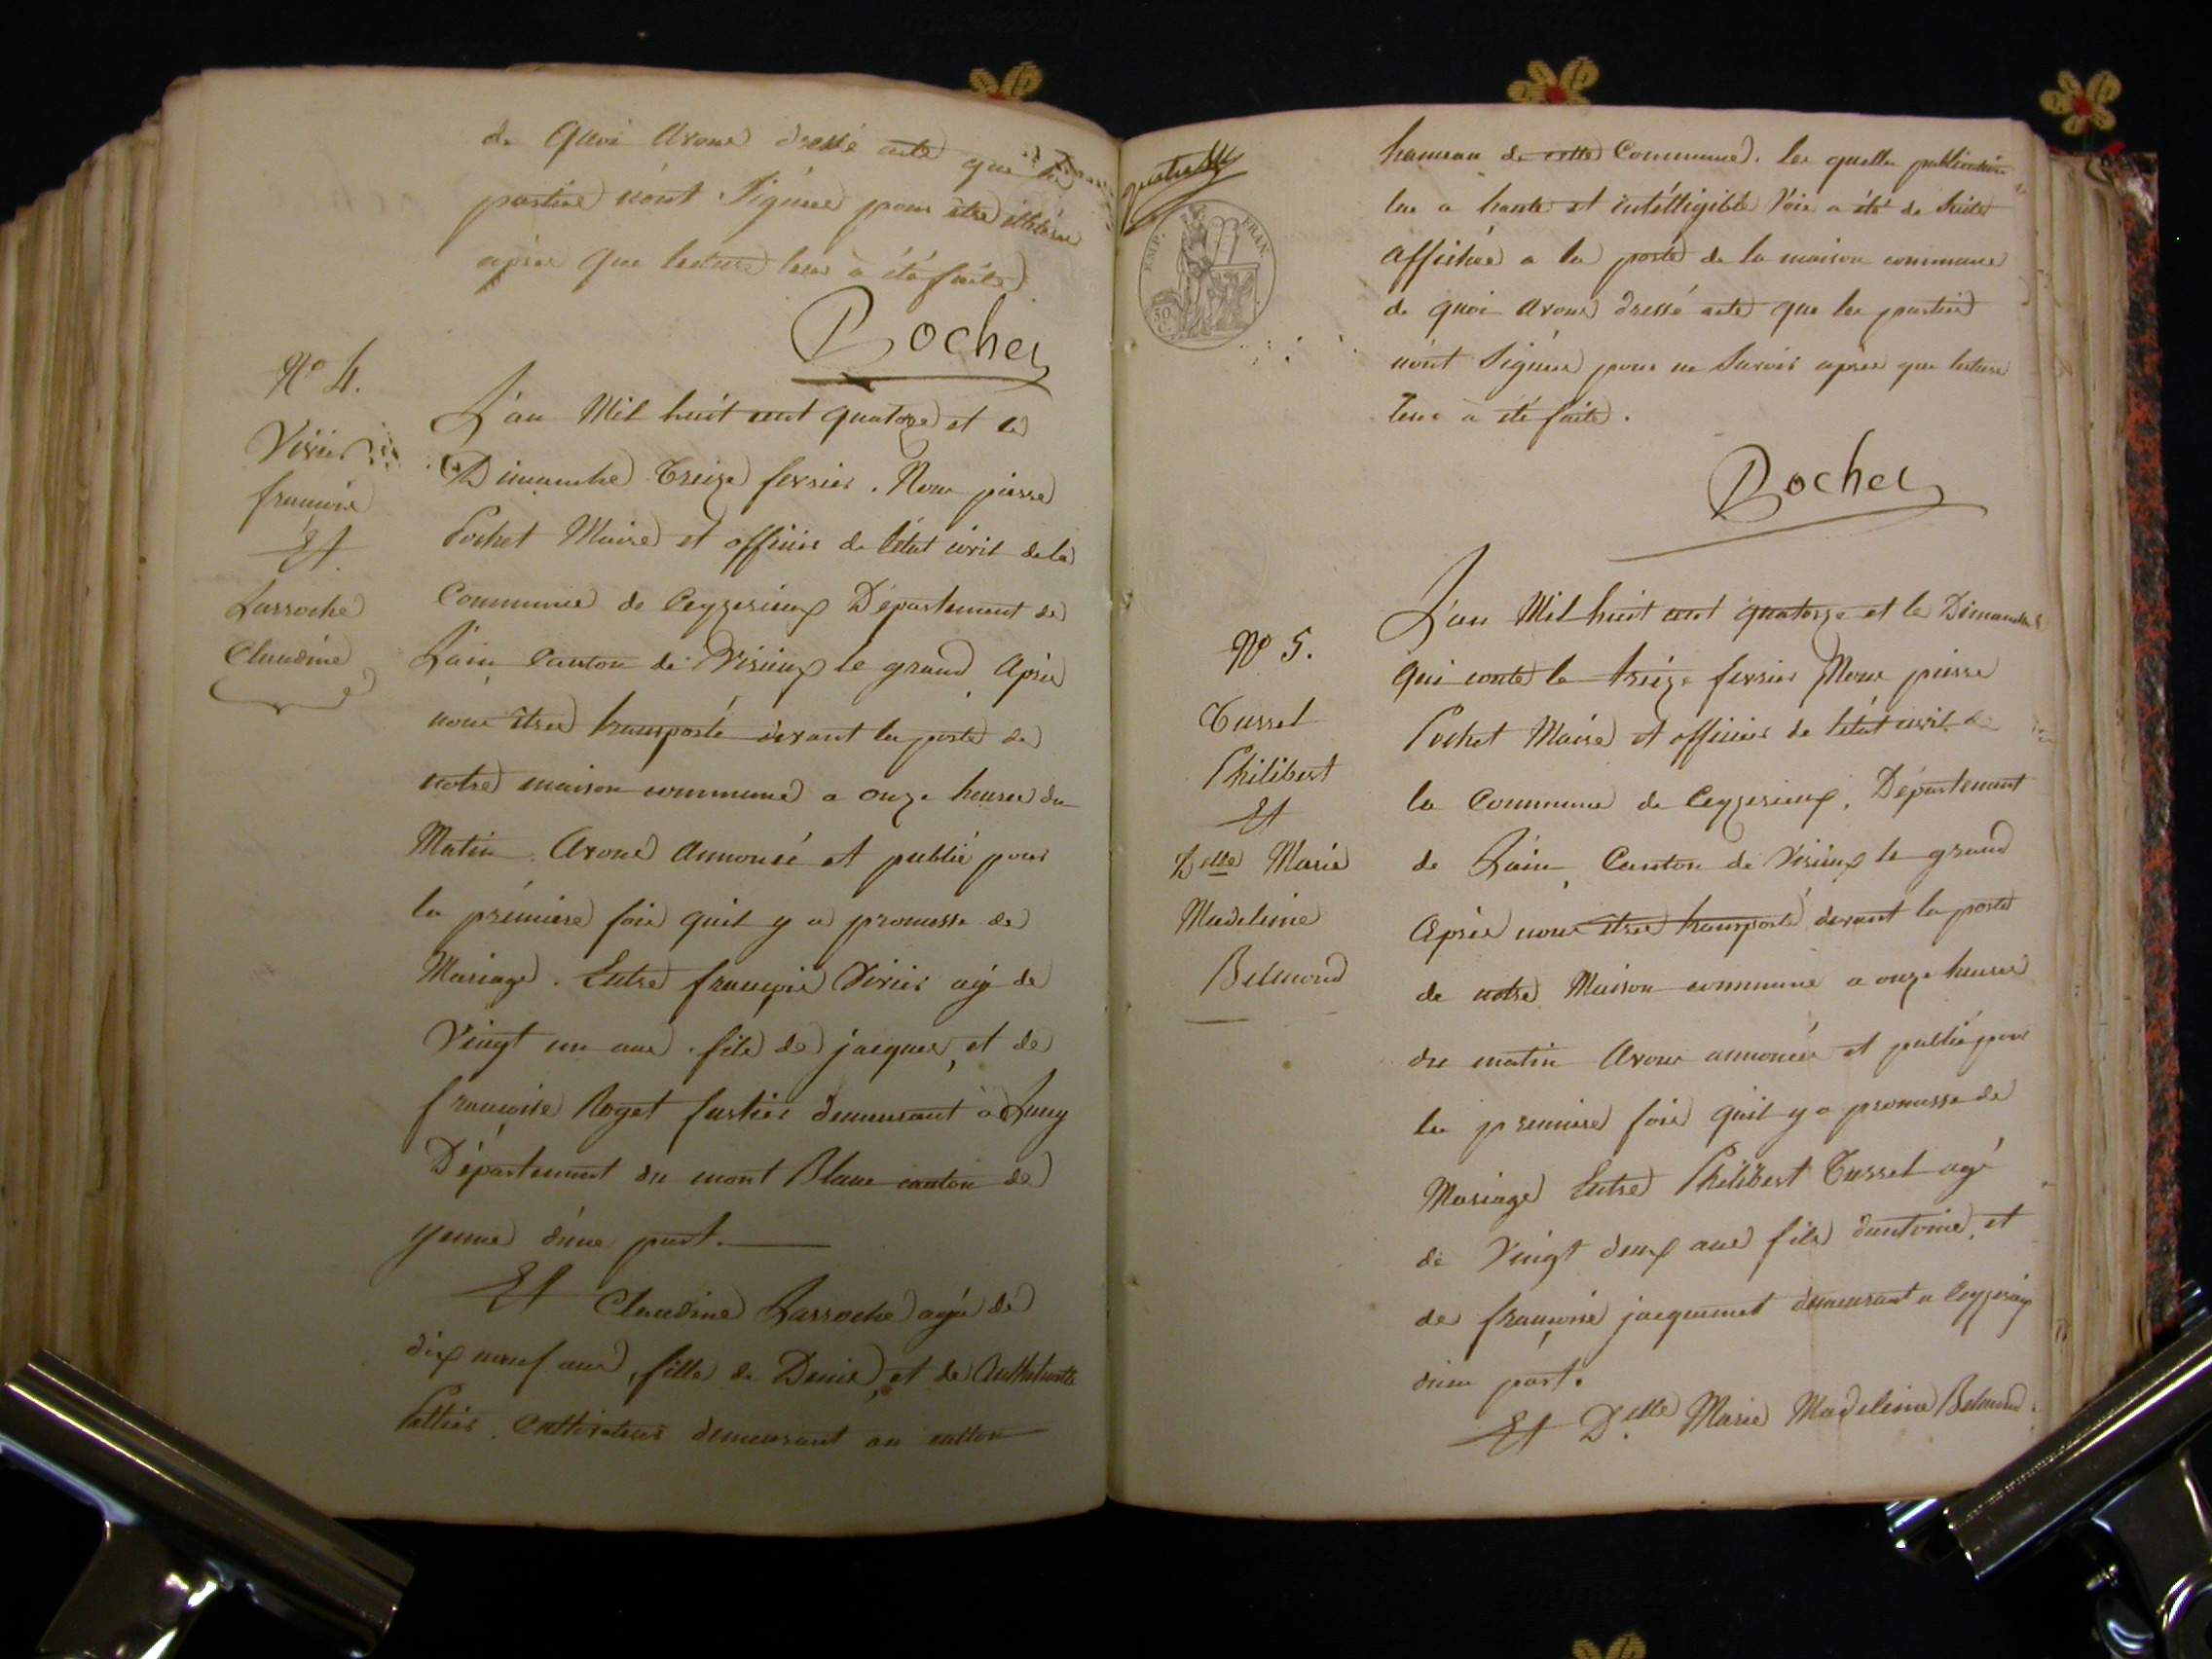 de quoi avons dressé acte que les
parties n'ont signées pour être illétérées
après que lecture leur à été faite
Pochet
No 4.
Virier
françois
Et
Larroche
Claudine
L'an Mil huit cent quatorze et le
Dimanche Treize fevrier. Nous pierre
Pochet Maire et officier de l'état civil de la
Commune de Ceyzerieux Département de
L'ain Canton de Virieux le grand Après
nous êtres transporté devant la porte de
notre maison commune a onze heures du
Matin Avons Annoncé et publié pour
la prémiere fois quil y a promesse de
Mariage. Entre françois Virier agé de
Vingt un ans fils de jacques, et de
françoise Roget fustier demeurant à Lucey
Département du mont Blanc canton de
yenne d'une part.
Et Claudine Larroche agée de
dix neuf ans, fille de Denis, et de Anthelmette
Pettier Cultivateur demeurant au vallon
hameau de cette Commune. la quelle publication
lue a haute et intélligible Voix a été de suite
Affichée a la porte de la maison commune
de quoi Avons dressé acte que les parties
n'ont Signées pour ne Savoir après que lecture
leur à été faite.
Pochet
EMP. FRAN.
50
C.
No 5.
Tussel
Philibert
Et
Delle Marie
Madeleine
Belmond
L'an Mil huit cent quatorze et le Dimanche
qui conte le treize fevrier Nous pierre
Pochet Maire et officier de l'état civil de
la Commune de Ceyzerieux, Département
de L'ain, Canton de Virieux le grand
Après nous êtres transporté devant la porte
de notre Maison commune a onze heures
du matin Avons annoncée et publié pour
la premiere fois quil y a promesse de
Mariage Entre Philibert Tussel agé
de Vingt deux ans fils d'antoine, et
de françoise jacquemet demeurant a Ceyzerieux
d'une part.
Et D.elle Marie Madeleine Belmond